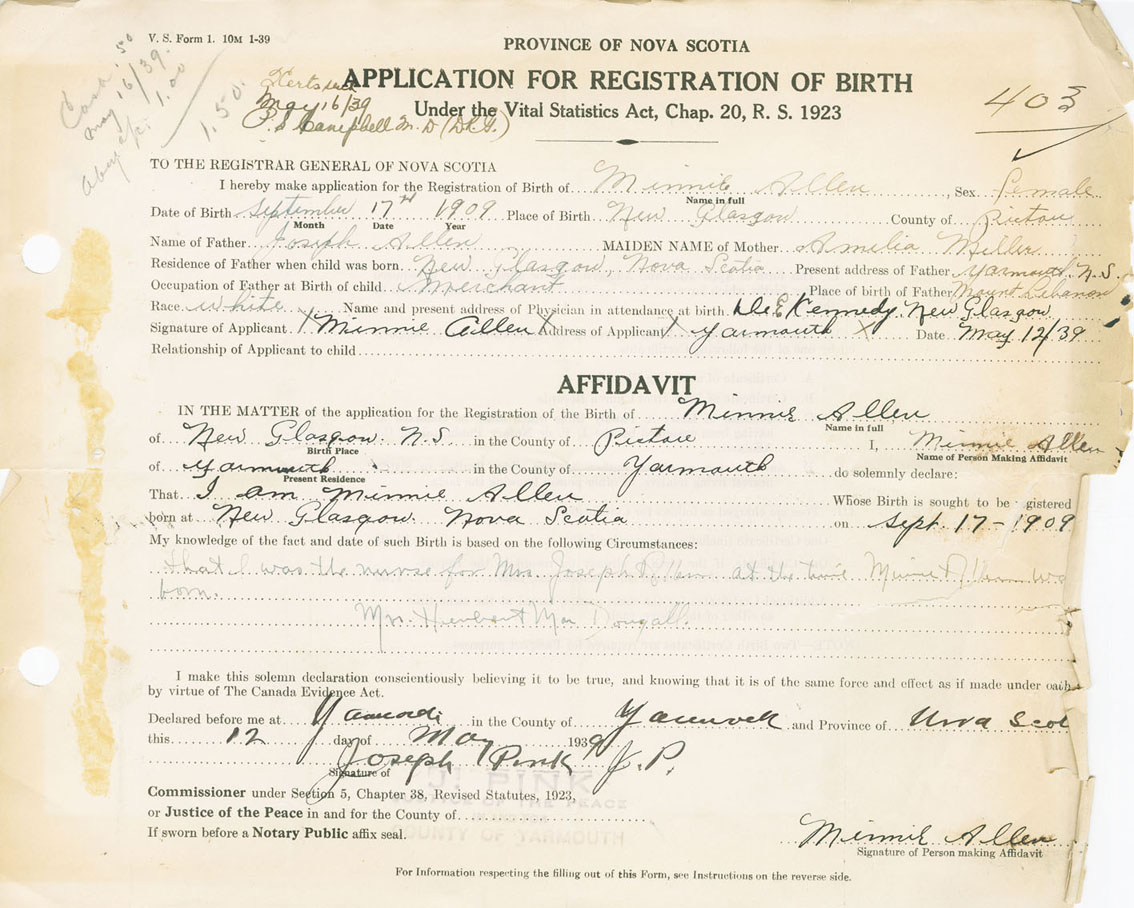 V. S. Form 1. 10M 1-39
PROVINCE OF NOVA SCOTIA
Cash .50
May 16/39.
1.00
1.50.
May 16/39
P. S. Campbell M.D (D.R.G.)
APPLICATION FOR REGISTRATION OF BIRTH
Under the Vital Statistics Act, Chap. 20, R. S. 1923
403
TO THE REGISTRAR GENERAL OF NOVA SCOTIA
I hereby make application for the Registration of Birth of Minnie Allen, Sex female
Name in full
Date of Birth September 17th 1909 Place of Birth New Glasgow County of Pictou
Month Date Year
Name of Father Joseph Allen MAIDEN NAME of Mother Amelia Miller
Residence of Father when child was born New Glasgow, Nova Scotia Present address of Father Yarmouth N.S.
Occupation of Father at Birth of child Merchant Place of birth of Father Mount Lebanon
Race White Name and present address of Physician in attendance at birth Kennedy New Glasgow
Signature of Applicant X Minnie Allen X Address of Applicant X Yarmouth X Date May 12/39
Relationship of Applicant to child
AFFIDAVIT
IN THE MATTER of the application for the Registration of the Birth of Minnie Allen
Name in full
of New Glasgow. N.S. in the County of Pictou I, Minnie Allen
Birth Place Name of Person Making Affidavit
of Yarmouth in the County of Yarmouth do solemnly declare:
Present Residence
That I am Minnie Allen Whose Birth is sought to be gistered
born at New Glasgow. Nova Scotia on Sept. 17-1909
My knowledge of the fact and date of such Birth is based on the following Circumstances:
that I was the nurse for Mrs. Joseph Allen at the time Minnie Allen was
born.
Mrs. Herbert MacDougall.
I make this solemn declaration conscientiously believing it to be true, and knowing that it is of the same force and effect as if made under oath
by virtue of The Canada Evidence Act.
Declared before me at Yarmouth in the County of Yarmouth and Province of Nova Scot
this 12 day of May 1939
Joseph Pink J.P.
Signature of
J. PINK
JUSTICE OF THE PEACE
COUNTY OF YARMOUTH
Commissioner under Section 5, Chapter 38, Revised Statutes, 1923,
or Justice of the Peace in and for the County of
If sworn before a Notary Public affix seal.
Minnie Allen
Signature of Person making Affidavit
For Information respecting the filling out of this Form, see Instructions on the reverse side.